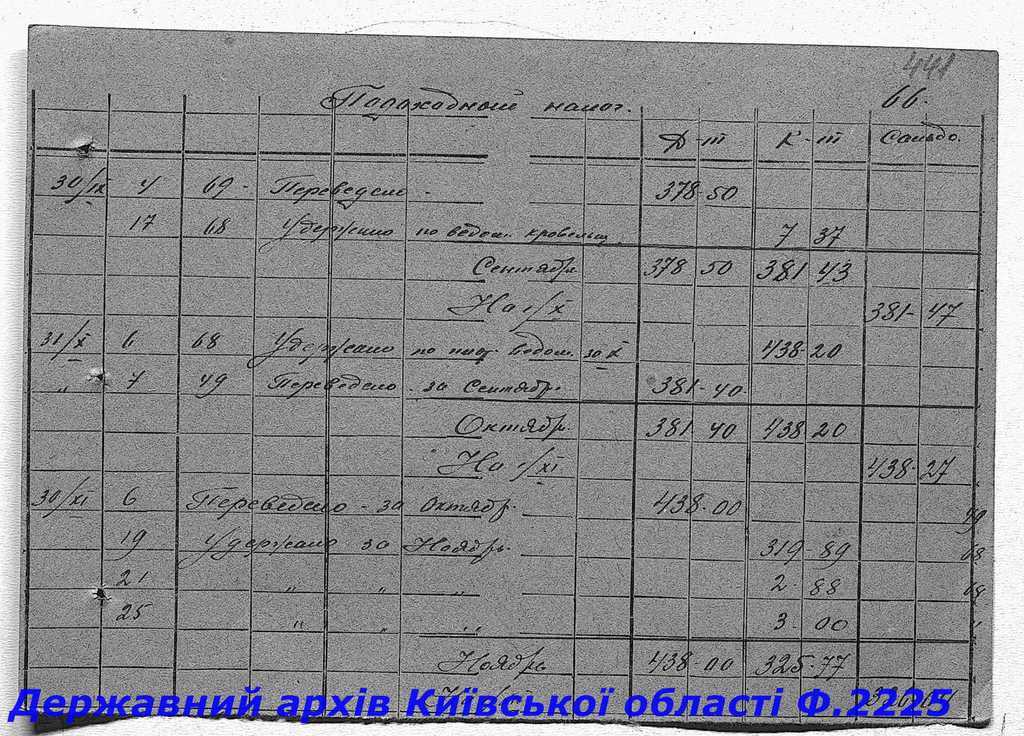 441
Подоходный налог. 66.
Д-т К-т Сальдо.
30/IX 4 69 - Переведено - 378-50
17 68 Удержано по ведом. кровельщ. 7 37
Сентябрь 378 50 381 43
На 1/X 381-47
31/X 6 68 Удержано по плат. ведом. за X 438-20
„ 7 49 Переведено - за Сентябрь. 381-40
Октябрь 381 40 438 20
На 1/XI 438-27
30/XI 6 Переведено - за Октябрь. 438-00 49
19 Удержано за Ноябрь. 319-89 68
21 „ „ „ 2-88 68
25 „ „ „ 3-00 „
Ноябрь 438-00 325-77
Державний архів Київської області Ф.2225